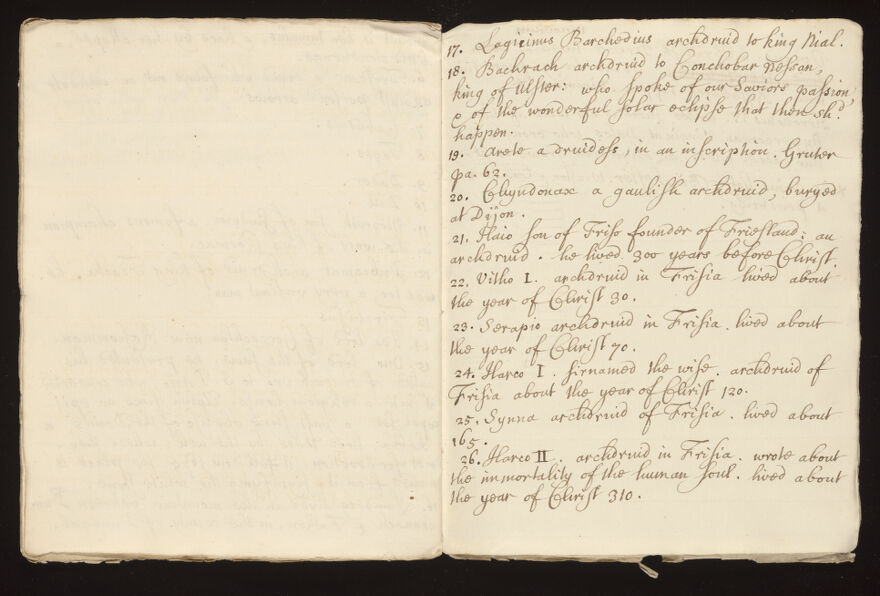 17. Lagicinus Barchedius archdruid to king Nial.
18. Bachrach archdruid to Conchobar Nessan,
king of Ulster: who spoke of our Saviors passion,
& of the wonderful solar eclipse that then shd.
happen.
19. Arete a druidess, in an inscription. Gruter
pa. 62.
20. Chyndonax a gaulish archdruid, buryed
at Dijon.
21. Haio son of Friso founder of Friesland; an
archdruid. he lived 300 years before Christ.
22. Vitho I. archdruid in Frisia lived about
the year of Christ 30.
23. Serapio archdruid in Frisia. lived about
the year of Christ 70.
24. Harco I. sirnamed the wise. archdruid of
Frisia about the year of Christ 120.
25. Synna archdruid of Frisia. lived about
165.
26. Harco II. archdruid in Frisia. wrote about
the immortality of the human soul. lived about
the year of Christ 310.